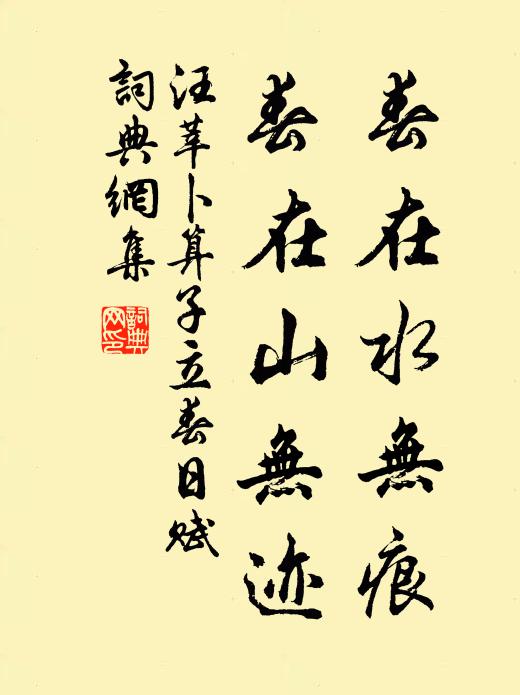 春在水無痕
春在山無迹
汪莘卜算子立春日赋
詞典網集
詞典网印